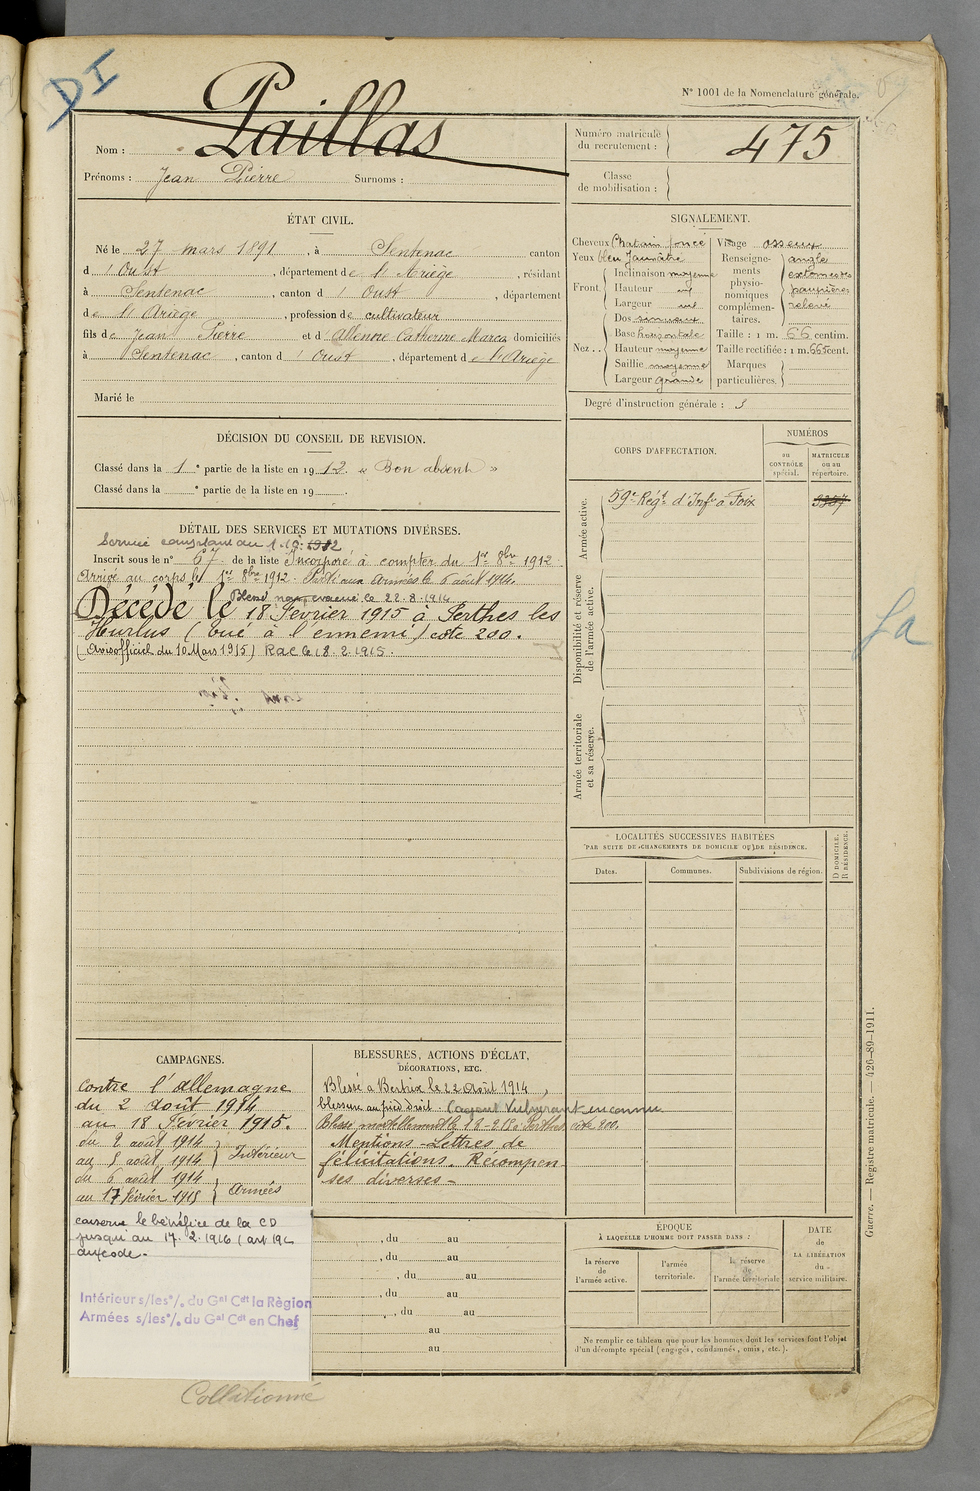 DI
N° 1001 de la Nomenclature générale.
Nom : Paillas
Prénoms : Jean Pierre Surnoms :
Numéro matricule du recrutement : 475
Classe de mobilisation :
ÉTAT CIVIL.
Né le 27 mars 1891, à Sentenac canton
d'Oust, département de l'Ariège, résidant
à Sentenac, canton d'Oust, département
de l'Ariège, profession de cultivateur
fils de Jean Pierre et d' Catherine Marca domiciliés
à Sentenac, canton d'Oust, département de l'Ariège
Marié le
SIGNALEMENT.
Cheveux Chatain foncé
Yeux bleu Jaunâtre
Front Inclinaison moyenne
Hauteur
Largeur
Nez Dos sinueux
Base horizontale
Hauteur moyenne
Saillie moyenne
Largeur grande
Visage osseux
Renseignements physionomiques complémentaires. angle externe des paupières relevé
Taille : 1 m. 66 centim.
Taille rectifiée : 1 m. 665 cent.
Marques particulières.
Degré d'instruction générale : 3
DÉCISION DU CONSEIL DE REVISION.
Classé dans la 1e partie de la liste en 1912. « Bon absent »
Classé dans la e partie de la liste en 19 .
CORPS D'AFFECTATION.
NUMÉROS
au CONTRÔLE spécial.
MATRICULE ou au répertoire.
Armée active.
59e Régt d'Infie à Foix
3357
Disponibilité et réserve de l'armée active.
Armée territoriale et sa réserve.
DÉTAIL DES SERVICES ET MUTATIONS DIVERSES.
Service comptant du 1.10.1912
Inscrit sous le n° 67 de la liste Incorporé à compter du 1er 8bre 1912.
Arrivé au corps le 1er 8bre 1912. Parti aux Armées le 6 août 1914.
Blessé non évacué le 22.8.1914
Décédé le 18 Février 1915 à Perthes les
Hurlus (tué à l'ennemi) cote 200.
(Avis officiel du 10 Mars 1915) Rac le 18.2.1915.
La
LOCALITÉS SUCCESSIVES HABITÉES
PAR SUITE DE CHANGEMENTS DE DOMICILE OU DE RÉSIDENCE.
Dates.
Communes.
Subdivisions de région.
D DOMICILE. R RÉSIDENCE.
CAMPAGNES.
Contre l'Allemagne
du 2 Août 1914
au 18 Février 1915.
du 2 août 1914
au 5 août 1914 } Intérieur
du 6 août 1914
au 17 février 1915 } Armées
conserve le bénéfice de la CD
jusqu'au 17.2.1916 (art 19
du code.
Intérieur s/les°/. du Gal Cdt la Région
Armées s/les°/. du Gal Cdt en Chef
BLESSURES, ACTIONS D'ÉCLAT,
DÉCORATIONS, ETC.
Blessé à Bertrix le 22 Août 1914,
blessure au pied droit. (agent Vulnérant inconnu
Blessé mortellement le 18-2-15 Perthes cote 200.
Mentions - Lettres de
félicitations. Récompen-
ses diverses -
, du au
, du au
, du au
, du au
, du au
au
au
ÉPOQUE
À LAQUELLE L'HOMME DOIT PASSER DANS :
la réserve de l'armée active.
l'armée territoriale.
la réserve de l'armée territoriale
DATE de LA LIBÉRATION du service militaire.
Ne remplir ce tableau que pour les hommes dont les services font l'objet
d'un décompte spécial (engagés, condamnés, omis, etc.).
Guerre. — Registre matricule. — 426-89-1911.
Collationné